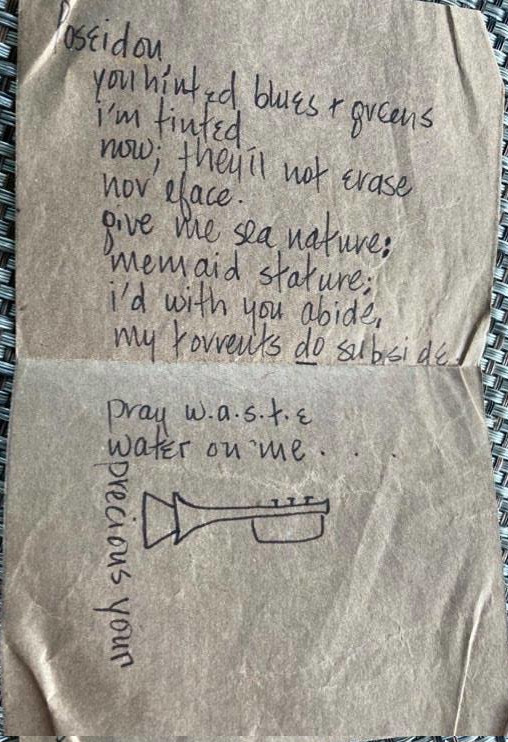 Poseidon
you hinted blues + greens
i'm tinted
now; they'll not erase
nor eface.
give me sea nature;
mermaid stature;
i'd with you abide,
my torrents do subside.
pray w.a.s.t.e
water on me . . .
precious your